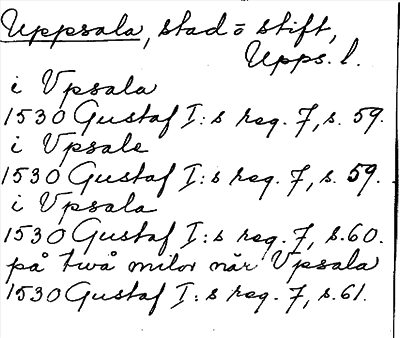 Uppsala, stad o stift,
Upps. l.
i Vpsala
1530 Gustaf I:s reg. 7, s. 59.
i Vpsale
1530 Gustaf I:s reg. 7, s. 59.
i Vpsala
1530 Gustaf I:s reg. 7, s. 60.
på twå milor när Vpsala
1530 Gustaf I:s reg. 7, s. 61.